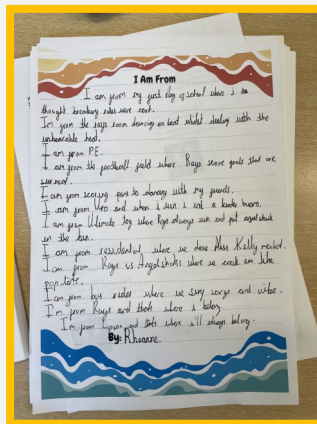 I Am From
I am from my first day of school where I
thought breaking rules were cool.
I'm from the rays room dancing on beat whilst dealing with the
unbearable heat.
I am from P.E.
I am from the football field where Rays score goals that are
I am from scoring pens to dancing with my friends.
I am from and when I run I eat a
I am from Ultimate tag where Rays always win and put angelsharks
in the bin.
I am from residential, where we have Miss Kelly
I am from Rays vs Angelsharks where we cook em like
pop tarts.
I am from bus rides where we sing songs and vibe.
I'm from Rays and thats where I belong
I'm from and thats where I'll always belong.
By: Rheanne